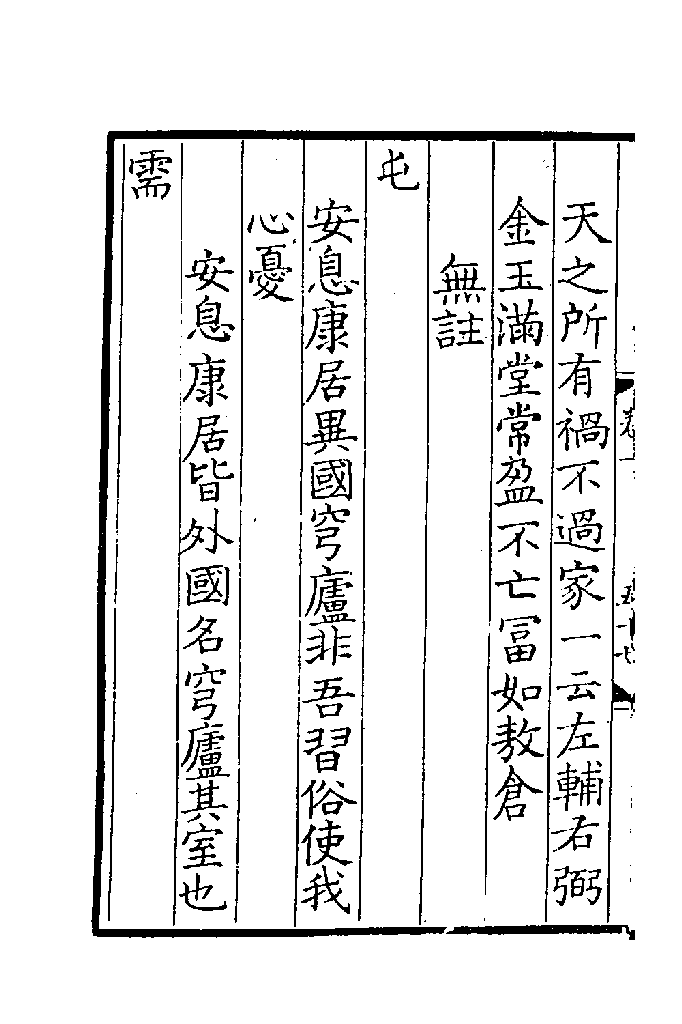 天之所有禍不過家一云左輔右弼
金玉滿堂常盈不亡冨如敖倉
無註
屯
安息康居異國穹廬非吾習俗使我
心憂
安息康居皆外國名穹廬其室也
需